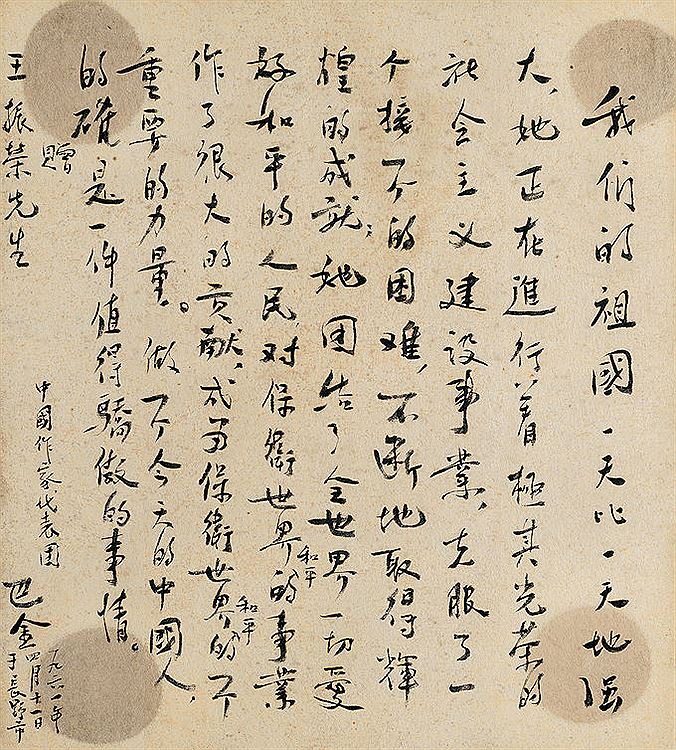 我们的祖國一天比一天地强
大,她正在進行着極其光荣的
社会主义建设事業,克服了一
个接一个的困难,不断地取得輝
煌的成就;她团结了全世界一切爱
好和平的人民,对保衛世界和平的事業
作了很大的贡献,成为保衛世界和平的一个
重要的力量。做一个今天的中國人,
的確是一件值得驕傲的事情。
贈
王振荣先生
中國作家代表团
巴金
一九六一年
四月十一日
于長野市